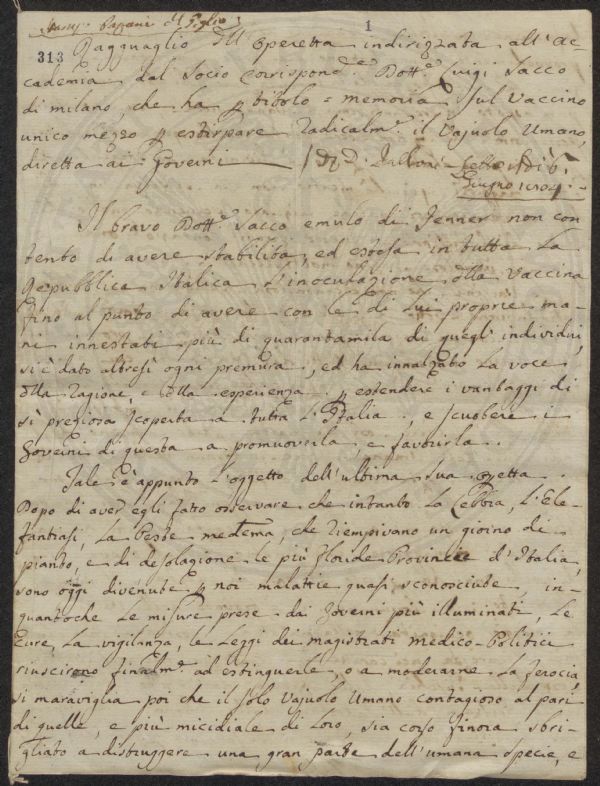 1
313
Ragguaglio dell'Operetta indirizzata all'Ac-
cademia dal Socio Corrispond.e Dott.e Luigi Sacco
di milano, che ha p titolo = memoria sul Vaccino
unico mezzo p estirpare radicalm.e il Vajuolo Umano,
diretta ai Governi
Giugno
Il bravo Dott.e Sacco emulo di Jenner non con
tento di avere stabilita, ed estesa in tutta la
Repubblica Italica l'inoculazione della Vaccina
fino al punto di avere con le di lui proprie ma-
ni innestati più di quarantamila di quegl'individui,
si è dato altresì ogni premura, ed ha innalzato la voce
della ragione, e della esperienza p estendere i vantaggi di
sì preziosa scoperta a tutta l'Italia, e scuotere i
Governi di questa a promuoverla, e favorirla.
Tale è appunto l'oggetto dell'ultima sua opetta.
Dopo di aver egli fatto osservare che intanto la Lebbra, l'Ele-
fantiasi, la Peste medema, che riempivano un giorno di
pianto, e di desolazione le più floride Provincie d'Italia,
sono oggi divenute p noi malattie quasi sconosciute, in-
quantoche le misure prese dai Governi più illuminati, le
Cure, la vigilanza, le Leggi dei magistrati medico-Politici
riuscirono finalm.e ad estinguerle, o a moderarne la ferocia,
si maraviglia poi che il solo Vajuolo Umano contagioso al pari
di quelle, e più micidiale di loro, sia corso finora sbri-
gliato a distruggere una gran parte dell'umana specie, e